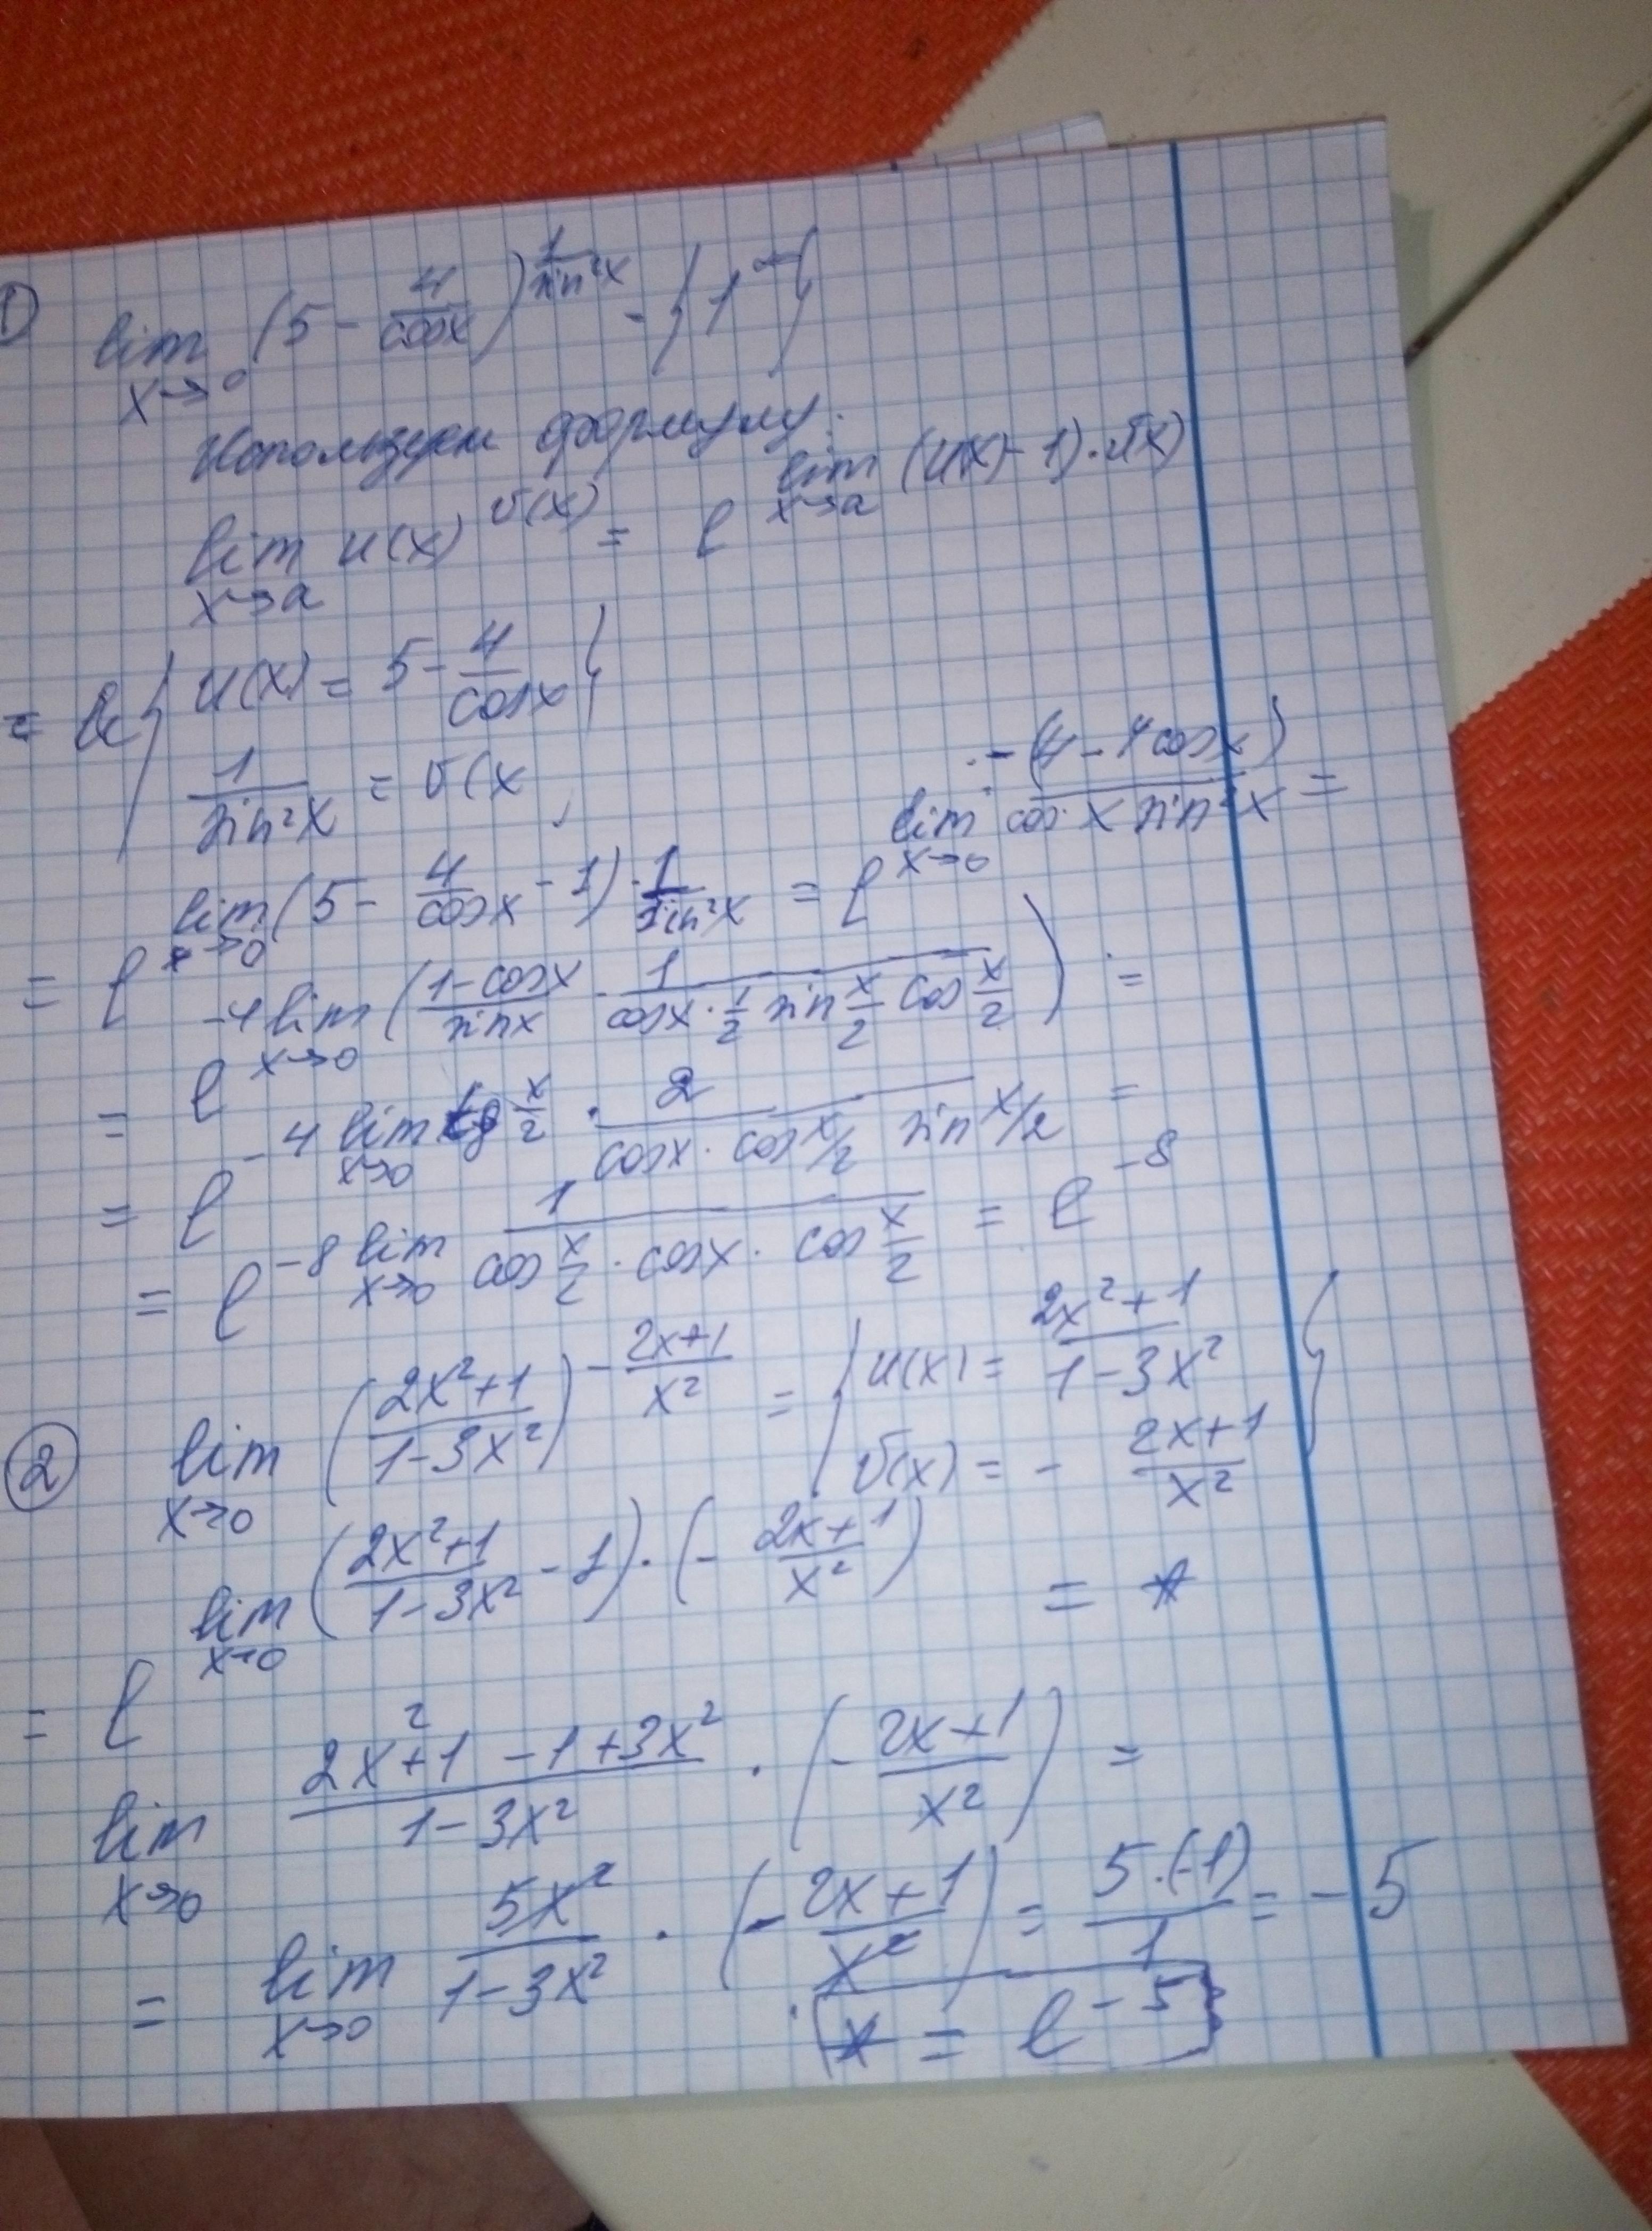 1) lim x→0 (5 - 4/cosx)^(1/sin²x) = {1^∞}
Используем формулу:
lim x→a u(x)^v(x) = e^(lim x→a (u(x)-1)·v(x))
= { u(x) = 5 - 4/cosx }
1/sin²x = v(x
= e^(lim x→0 (5 - 4/cosx - 1)·1/sin²x) = e^(lim x→0 -(4-4cosx)/(cosx sin²x)) =
= e^(-4 lim x→0 (1-cosx/sinx · 1/(cosx·1/2 sin x/2 cos x/2))) =
= e^(-4 lim x→0 tg x/2 · 2/(cosx·cos x/2 sin x/2)) =
= e^(-8 lim x→0 1/(cos x/2 · cosx · cos x/2)) = e^(-8)
2) lim x→0 ((2x²+1)/(1-3x²))^(-(2x+1)/x²) = { u(x) = (2x²+1)/(1-3x²)
v(x) = - (2x+1)/x² }
= e^(lim x→0 ((2x²+1)/(1-3x²) - 1)·(-(2x+1)/x²)) = *
lim x→0 (2x²+1-1+3x²)/(1-3x²) · (-(2x+1)/x²) =
= lim x→0 5x²/(1-3x²) · (-(2x+1)/x²) = 5·(-1)/1 = -5
* = e^(-5)